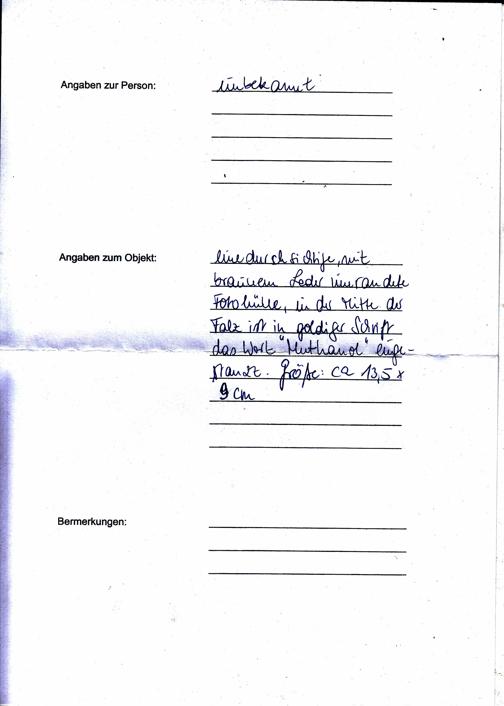 Angaben zur Person: unbekannt
Angaben zum Objekt: Eine durchsichtige, mit
braunem Leder umrandete
Fotohülle, in der Mitte der
Falz ist in goldiger Schrift
das Wort "Muthanol" einge-
stanzt. Größe: ca 13,5 x
9 cm
Bermerkungen: